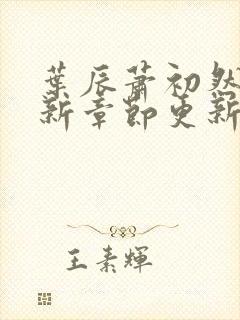 葉辰蕭初然
新章節更新
王素輝